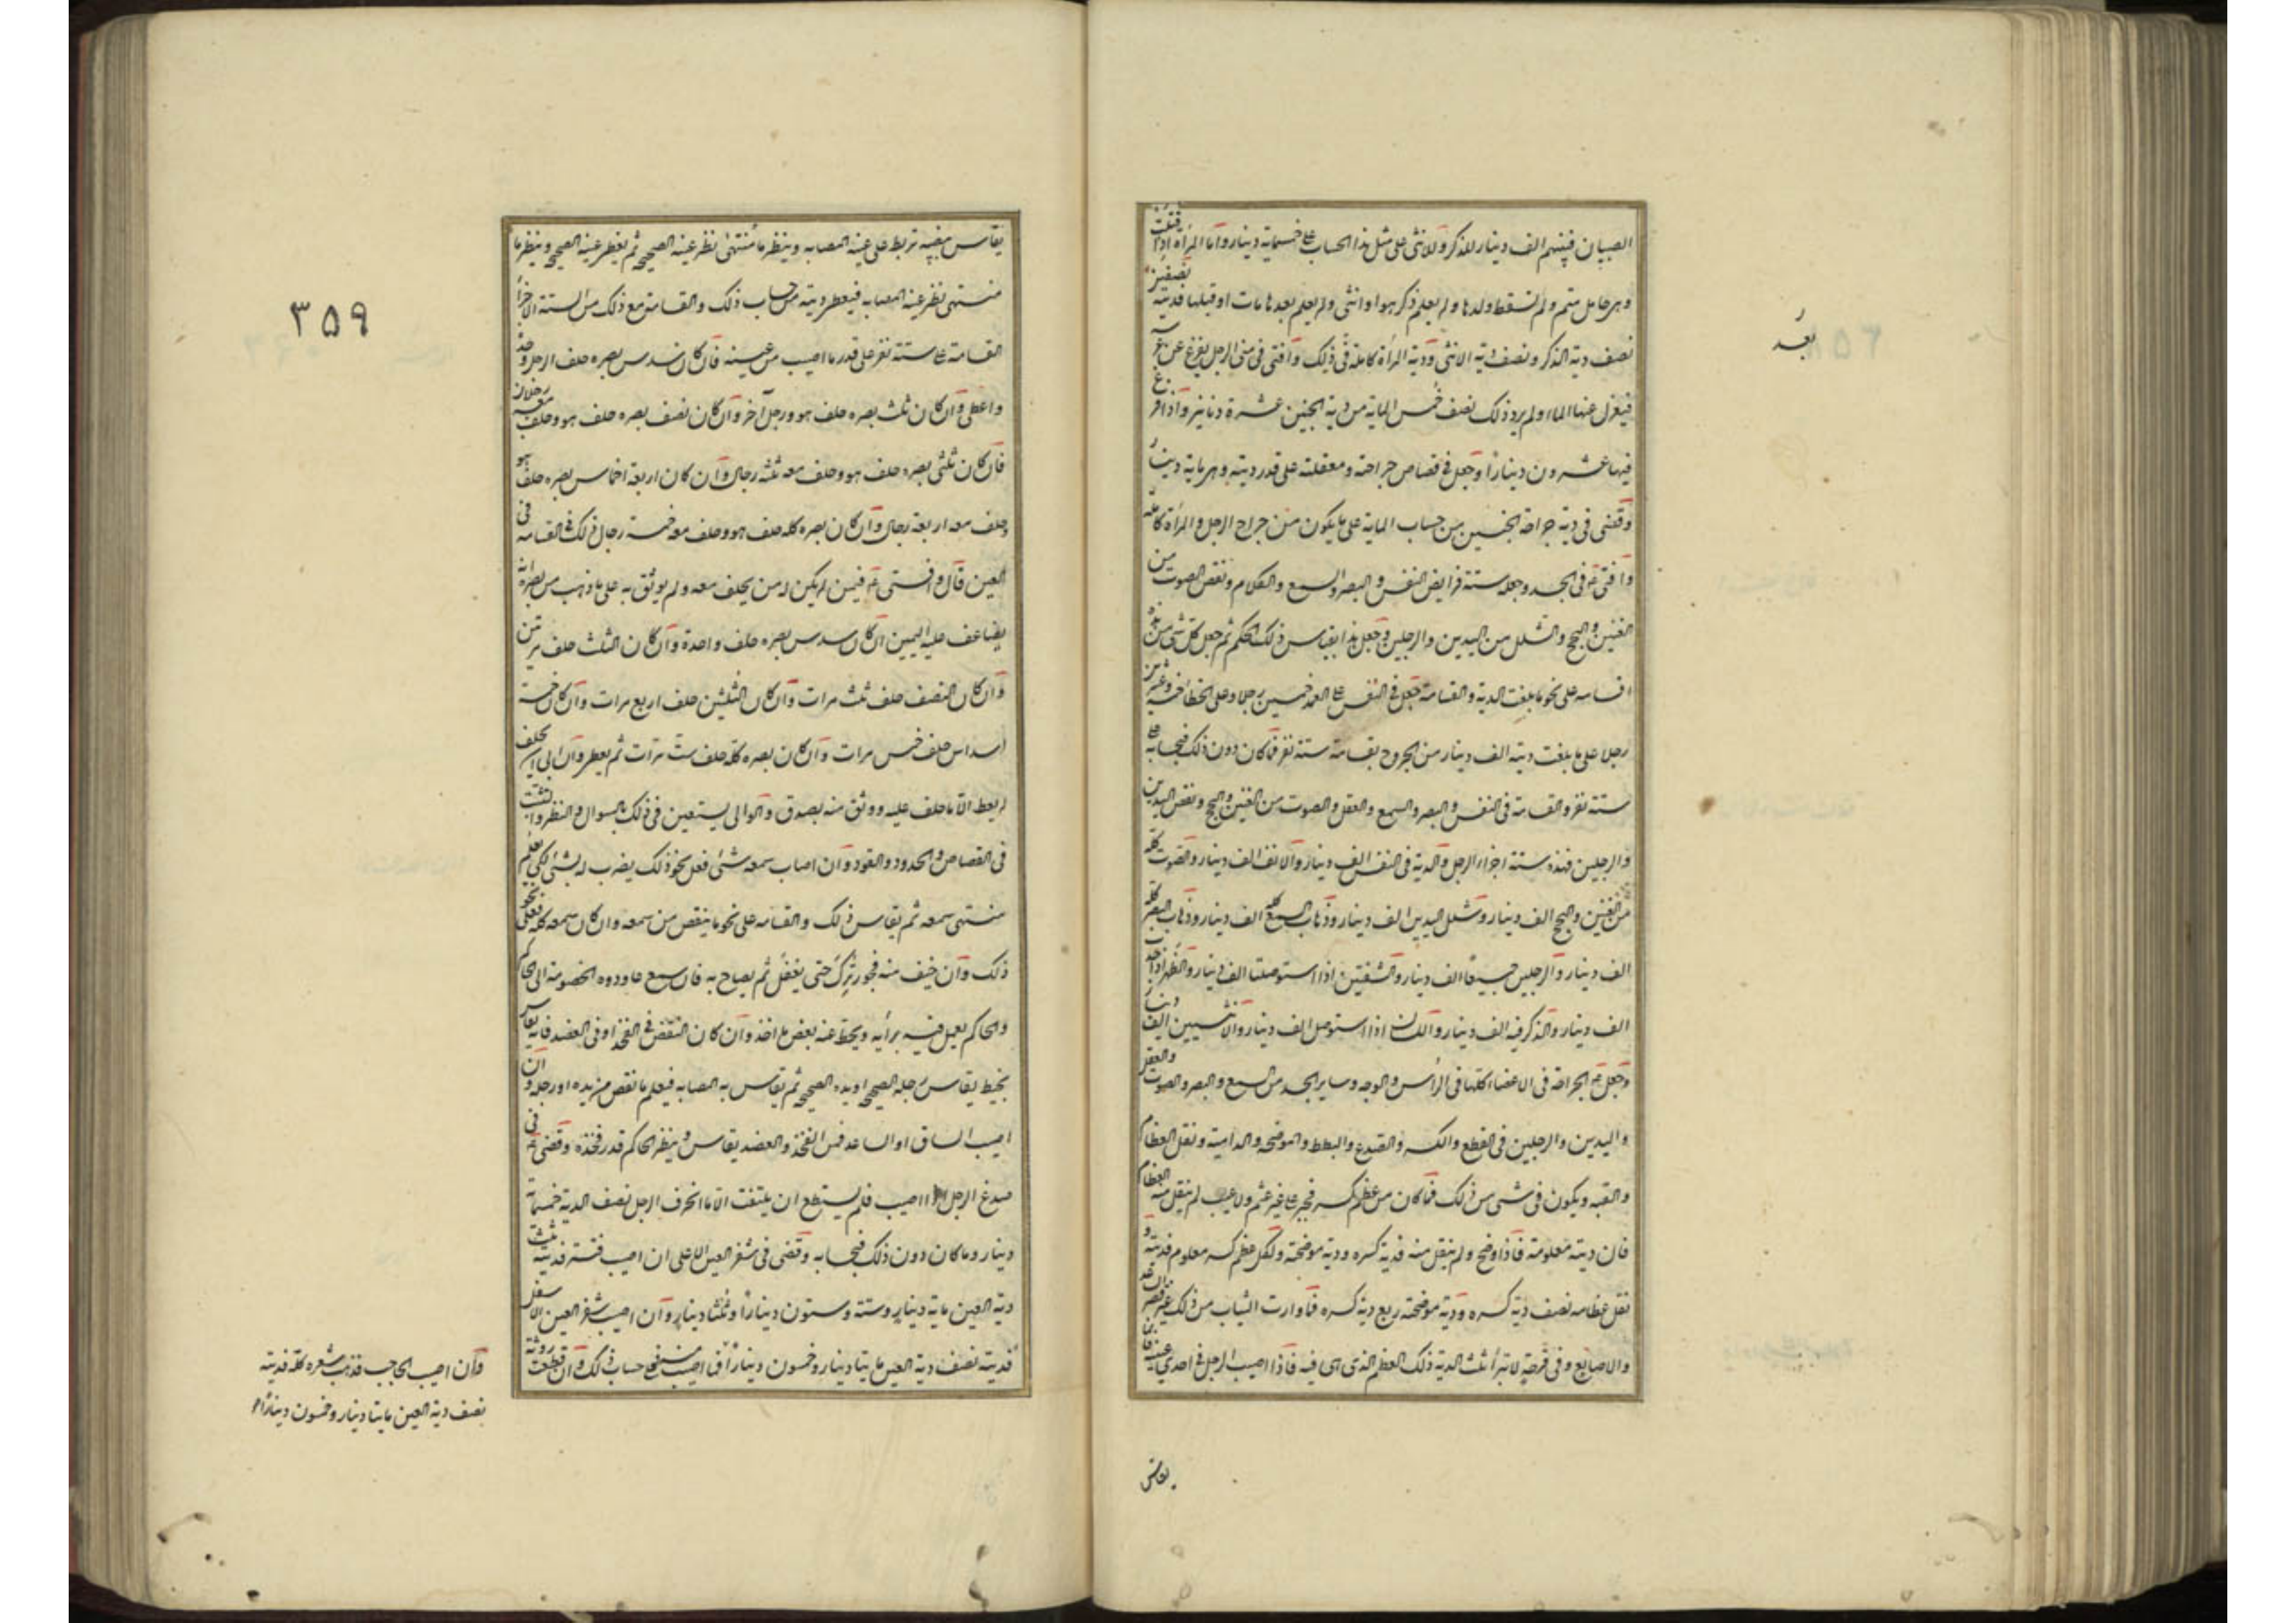 الصبيان فبينهم الف دينار للذكر وللانثى على مثل هذا الحساب على خمسماية دينار واما المرأة اذا قتلت
وهى حامل متم ولم تسقط ولدها ولم يعلم ذكر هو او انثى ولم يعلم بعدها مات او قبلها فديته نصفين
نصف دية الذكر ونصف دية الانثى ودية المرأة كاملة فى ذلك وافتى فى منى الرجل يفرغ عن عرسه
فيعزل عنها الماء ولم يرد ذلك نصف خمس الماية من دية الجنين عشرة دنانير واذا افرغ
فيها عشرون دينارا وجعل فى قصاص جراحته ومعقلته على قدر ديته وهى ماية دينار
وقضى فى دية جراحة الجنين من حساب الماية على ما يكون من جراح الرجل والمرأة كاملة
وافتى ع فى الجسد وجعله ستة فرايض النفس والبصر والسمع والكلام ونقص الصوت من
الغنن والبحح والشلل من اليدين والرجلين وجعل هذا بقياس ذلك الحكم ثم جعل كل شئ من هذه
قسامه على نحو ما بلغت الدية والقسامة جعل فى النفس على العمد خمسين رجلا وعلى الخطأ خمسة وعشرين
رجلا على ما بلغت ديته الف دينار من الجروح بقسامة ستة نفر فما كان دون ذلك فبحسابه على
ستة نفر والقسامة فى النفس والبصر والسمع والعقل والصوت من الغنن والبحح ونقص اليدين
والرجلين فهذه ستة اجزاء الرجل والدية فى النفس الف دينار والانف الف دينار والصوت كله
من الغنن والبحح الف دينار وشلل اليدين الف دينار وذهاب السمع كله الف دينار وذهاب البصر كله
الف دينار والرجلين جميعا الف دينار والشفتين اذا استوصلتا الف دينار والظهر اذا احدب
الف دينار والذكر فيه الف دينار واللسان اذا استوصل الف دينار والانثيين الف دينار
وجعل ع الجراحة فى الاعضاء كلها فى الرأس والوجه وساير الجسد من السمع والبصر والصوت والعقل
واليدين والرجلين فى القطع والكسر والصدع والبطط والموضحة والدامية ونقل العظام
والنقبه ويكون فى شئ من ذلك فما كان من عظم كسر فجبر على غير عثم ولا عيب لم ينقل منه العظام
فان ديته معلومة فاذا اوضح ولم ينقل منه فدية كسره ودية موضحته ولكل عظم كسر معلوم فديته و
نقل عظامه نصف دية كسره ودية موضحته ربع دية كسره فما وارت الثياب من ذلك غير قصبتى الساعد
والاصابع وفى قرحة لا تبرأ ثلث الدية ذلك العظم الذى هى فيه فاذا اصيب الرجل فى احدى عينيه فانما
يقاس
بعد
يقاس ببيضه تربط على عينه المصابه وينظر ما منتهى نظر عينه الصحيحه ثم يغطى عينه الصحيحه وينظر ما
منتهى نظر عينه المصابه فيعطى ديته من حساب ذلك والقسامة مع ذلك من الستة الاجزاء
القسامة على ستة نفر على قدر ما اصيب من عينه فان كان سدس بصره حلف الرجل وحده
واعطى وان كان ثلث بصره حلف هو ورجل آخر وان كان نصف بصره حلف هو وحلف معه رجلان
فان كان ثلثى بصره حلف هو وحلف معه ثلثه رجال وان كان اربعة اخماس بصره حلف هو
وحلف معه اربعة رجال وان كان بصره كله حلف هو وحلف معه خمسة رجال ذلك فى القسامه فى
العين قال وافتى ع فيمن لم يكن له من يحلف معه ولم يوثق به على ما ذهب من بصره انه
يضاعف عليه اليمين ان كان سدس بصره حلف واحدة وان كان الثلث حلف مرتين
وان كان النصف حلف ثلث مرات وان كان الثلثين حلف اربع مرات وان كان خمسة
اسداس حلف خمس مرات وان كان بصره كله حلف ستة مرات ثم يعطى وان ابى ان يحلف
لم يعط الا ما حلف عليه ووثق منه بصدق والوالى يستعين فى ذلك بالسوال والنظر والتثبت
فى القصاص والحدود والقود وان اصاب سمعه شئ فعلى نحو ذلك يضرب له بشئ لكى يعلم
منتهى سمعه ثم يقاس ذلك والقسامه على نحو ما ينقص من سمعه وان كان سمعه كله فعلى نحو
ذلك وان خيف منه فجور ترك حتى يغفل ثم يصاح به فان سمع عاودوه الخصومة الى الحاكم
والحاكم يعمل فيه برأيه ويحط عنه بعض ما اخذ وان كان النقص فى الفخذ او فى العضد فانه يقاس
بخيط يقاس رجله الصحيحه او يده الصحيحه ثم يقاس به المصابه فيعلم ما نقص من يده او رجله وان
اصيب الساق او الساعد فمن الفخذ والعضد يقاس وينظر الحاكم قدر فخذه وقضى ع فى
صدغ الرجل اذا اصيب فلم يستطع ان يلتفت الا ما انحرف الرجل نصف الدية خمسماية
دينار وما كان دون ذلك فبحسابه وقضى فى شفر العين الاعلى ان اصيب فشتر فديته ثلث
دية العين ماية دينار وستة وستون دينارا وثلثا دينار وان اصيب شفر العين الاسفل
فديته نصف دية العين مايتا دينار وخمسون دينارا فما اصيب منه فعلى حساب ذلك وان قطعت روثة
وان اصيب الحاجب فذهب شعره كله فديته
نصف دية العين مايتا دينار وخمسون دينارا
٣٥٩